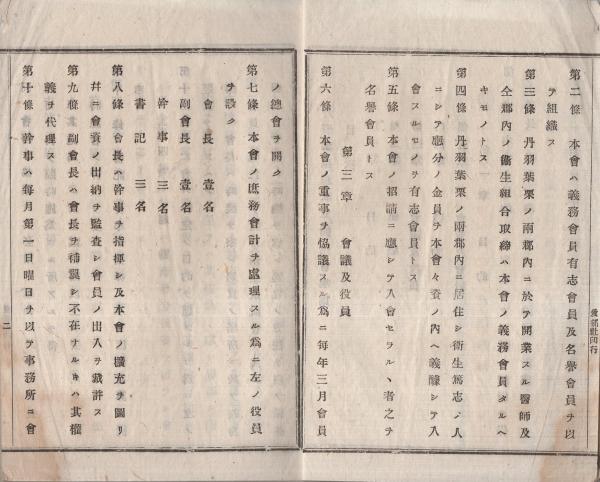 第二條　本會ハ義務會員有志會員及名譽會員ヲ以
テ組織ス
第三條　丹羽葉栗ノ兩郡內ニ於テ開業スル醫師及
全郡內ノ衞生組合取締ハ本會ノ義務會員タルヘ
キモノトス
第四條　丹羽葉栗ノ兩郡內ニ居住シ衞生篤志ノ人
ニシテ應分ノ金員ヲ本會々資ノ內ヘ義醵シテ入
會スルモノヲ有志會員トス
第五條　本會ノ招請ニ應シテ入會セラルヽ者之ヲ
名譽會員トス
第三章　會議及役員
第六條　本會ノ重事ヲ協議スル爲ニ每年三月會員
ノ總會ヲ開ク
第七條　本會ノ庶務會計ヲ處理スル爲ニ左ノ役員
ヲ設ク
會長　壹名
副會長　壹名
幹事　四名
書記　三名
第八條　會長ハ幹事ヲ指揮シ及本會ノ擴充ヲ圖リ
幷ニ會資ノ出納ヲ監査シ會員ノ出入ヲ裁許ス
第九條　副會長ハ會長ヲ補翼シ不在ナルキハ其權
義ヲ代理ス
第十條　幹事ハ每月第一日曜日ヲ以テ事務所ニ會
二